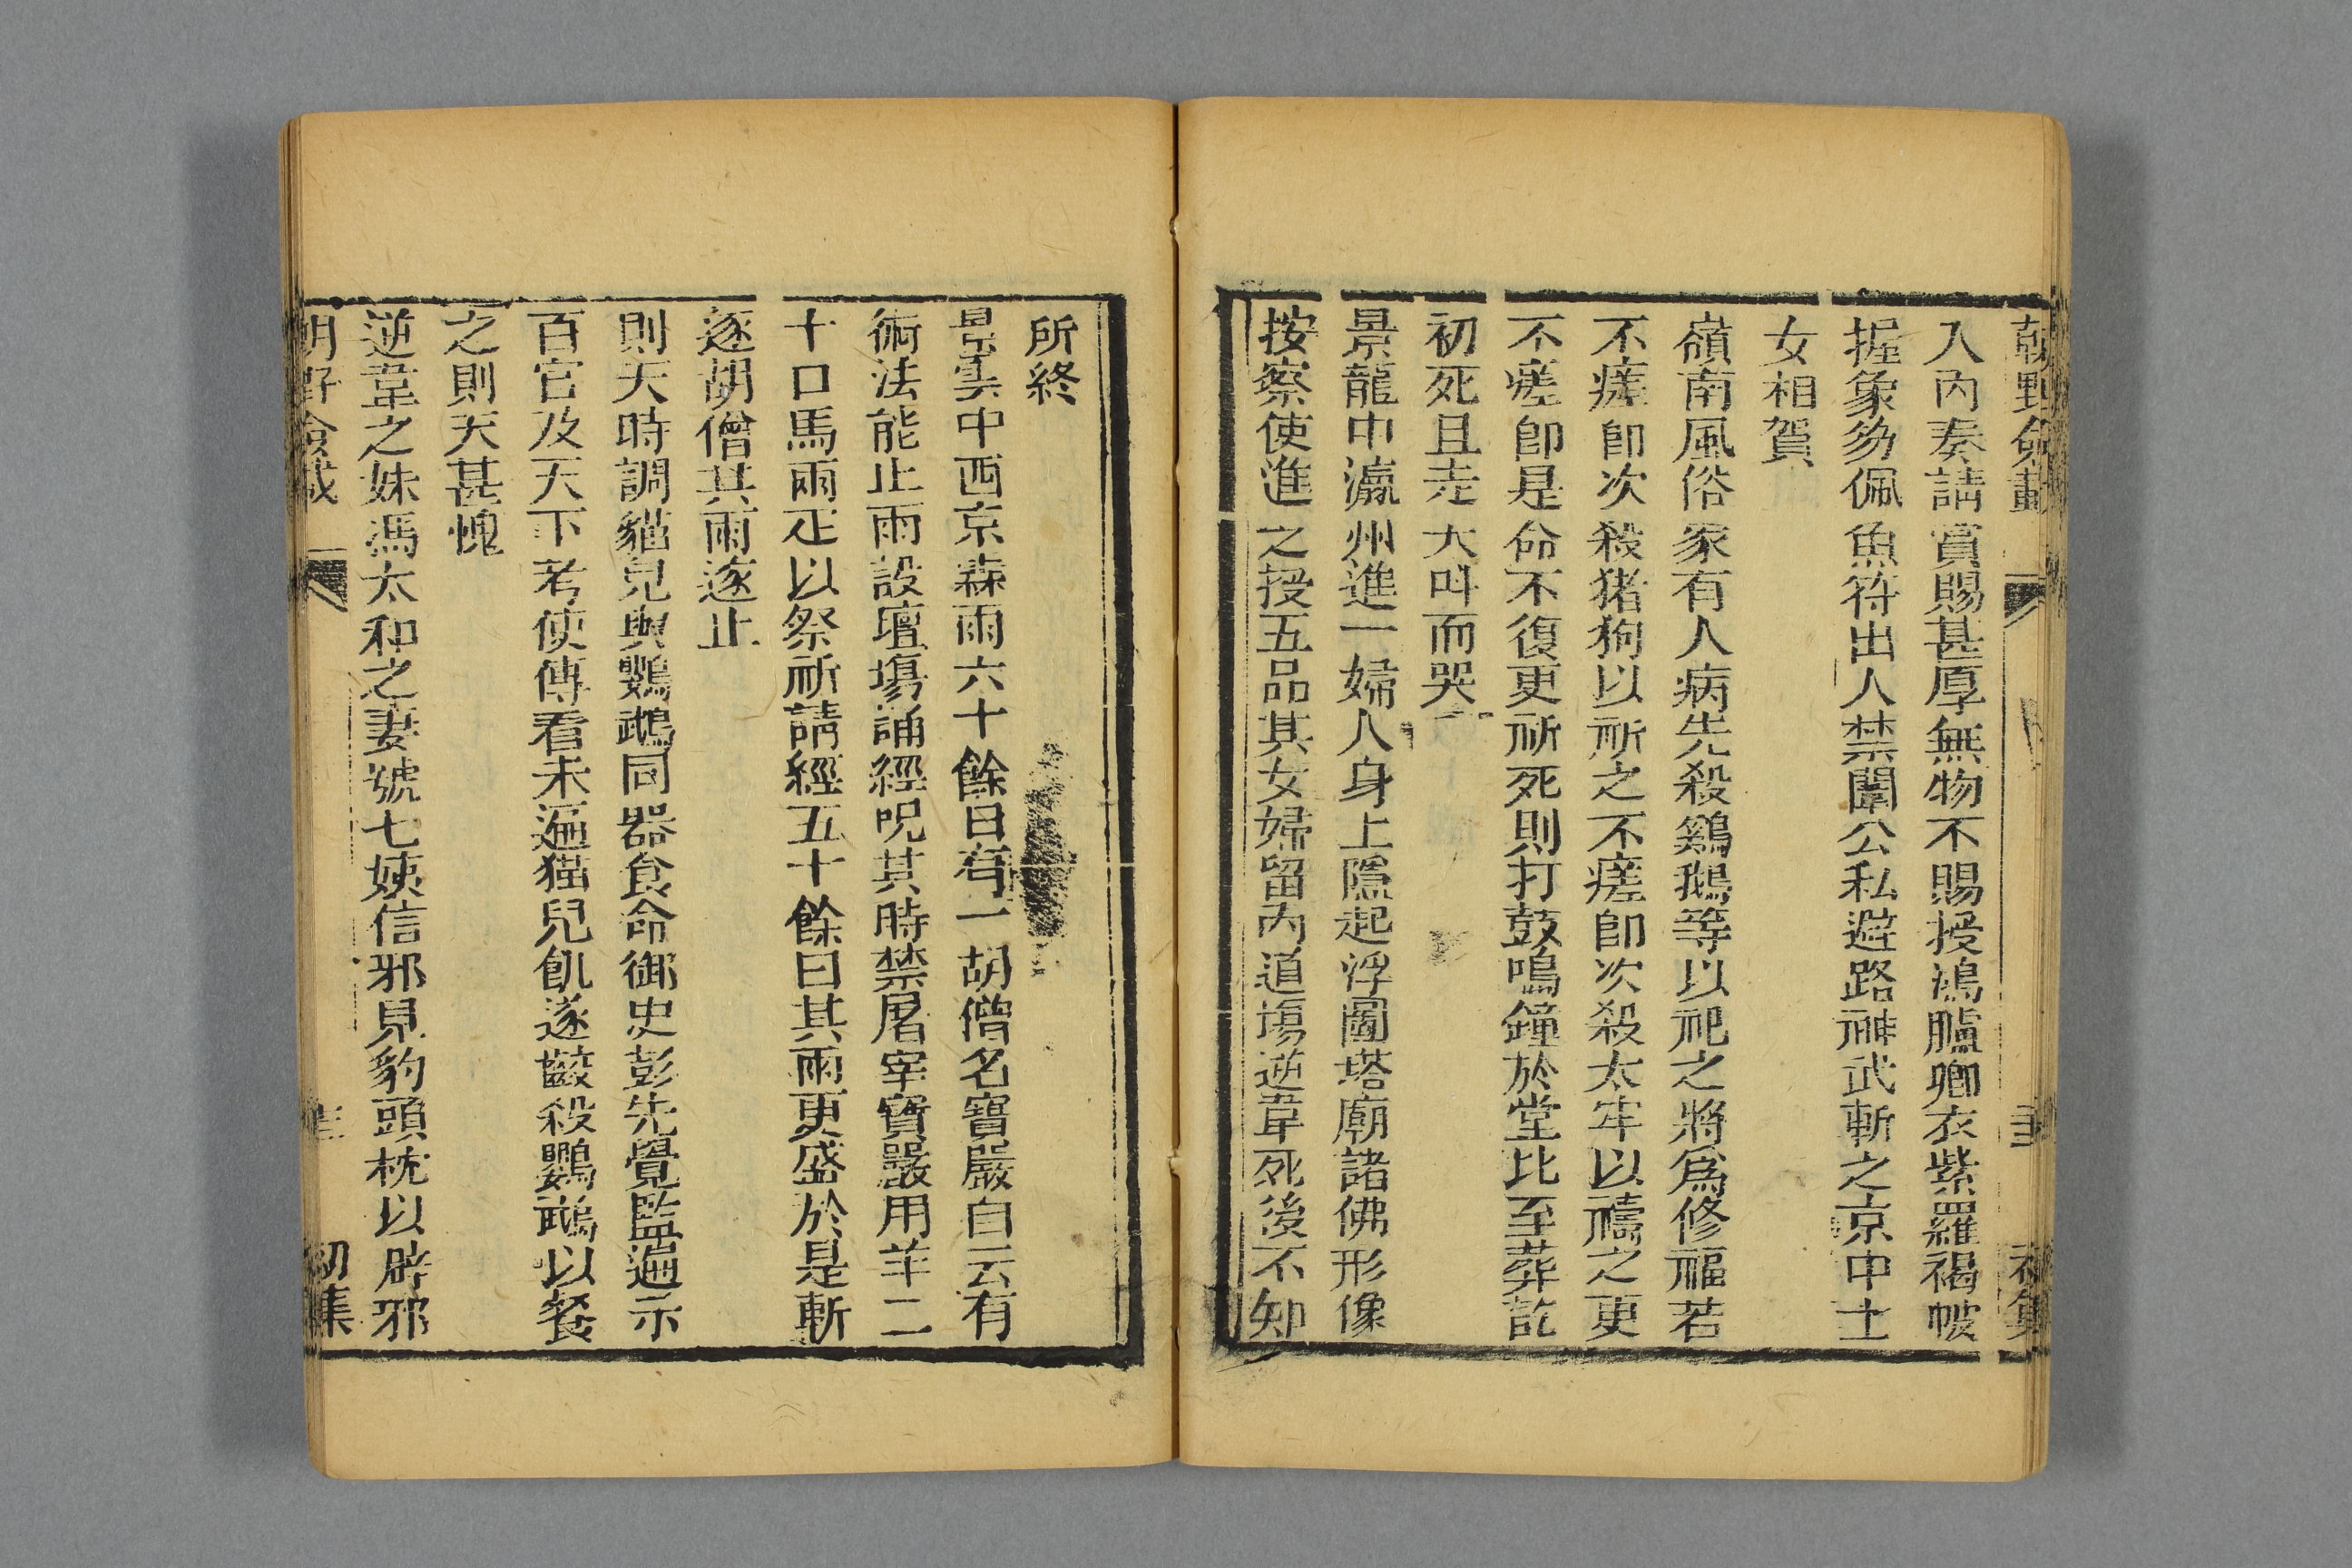 朝野僉載
三
初集
入內奏請賞賜甚厚無物不賜授鴻臚卿衣紫羅裙帔
握象笏佩魚符出入禁闈公私避路神武斬之京中士
女相賀
嶺南風俗家有人病先殺鷄鵝等以祀之將爲修福若
不瘥卽次殺猪狗以祈之不瘥卽次殺太牢以禱之更
不瘥卽是命不復更祈死則打鼓鳴鐘於堂比至葬訖
初死且走大叫而哭
景龍中瀛州進一婦人身上隱起浮圖塔廟諸佛形像
按察使進之授五品其女婦留內道塲逆韋死後不知
所終
景雲中西京霖雨六十餘日有一胡僧名寶嚴自云有
術法能止雨設壇塲誦經呪其時禁屠宰寶嚴用羊二
十口馬兩疋以祭祈請經五十餘日其雨更盛於是斬
逐胡僧其雨遂止
則天時調貓兒與鸚鵡同器食命御史彭先覺監遍示
百官及天下考使傳看未遍猫兒飢遂齩殺鸚鵡以餐
之則天甚愧
逆韋之妹馮太和之妻號七姨信邪見豹頭枕以辟邪
朝野僉載
三
初集